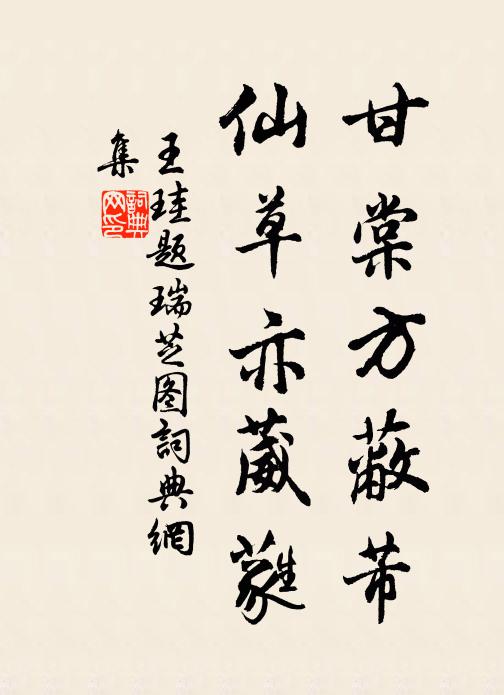 甘棠方蔽芾
仙草亦葳蕤
王珪题瑞芝图詞典網
集
詞典网印